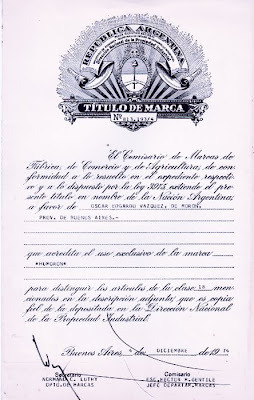 REPUBLICA ARGENTINA
TÍTULO DE MARCA
Nº
El Comisario de Marcas de
Fábrica, de Comercio y de Agricultura, de con-
formidad a lo resuelto en el expediente respecti-
vo y a lo dispuesto por la ley 3975, extiende el pre-
sente título en nombre de la Nación Argentina,
a favor de OSCAR EDGARDO VAZQUEZ, DE MORON,
PROV. DE BUENOS AIRES.-
que acredita el uso exclusivo de la marca
"HUMORON"
para distinguir los artículos de la clase 16 men-
cionados en la descripción adjunta, que es copia
fiel de la depositada en la Dirección Nacional
de la Propiedad Industrial.
Buenos Aires, DICIEMBRE de 1974
Secretario
Comisario
NORMAND C. LUTHY
ESC. HECTOR M. GENTILE
DPTO. DE MARCAS
JEFE DEPARTAM. MARCAS